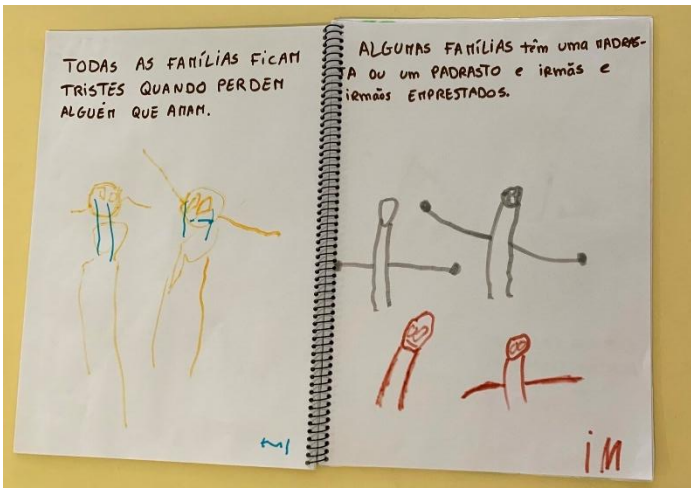 TODAS AS FAMÍLIAS FICAM
TRISTES QUANDO PERDEM
ALGUÉM QUE AMAM.
ALGUMAS FAMÍLIAS têm uma MADRAS-
TA OU um PADRASTO e irmãs e
irmãos EMPRESTADOS.
iM